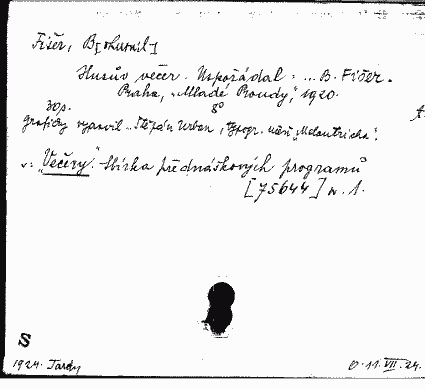 Fišer, B[ohumil]
Husův večer. Uspořádal: ... B. Fišer.
Praha, „Mladé Proudy", 1920.
30 s. 8°
Graficky vypravil .. Štěpán Urban,
v: „Večery." Sbírka přednáškových programů
[75644] n. 1.
S
1924. Tardy
O. 11. VII. 24.